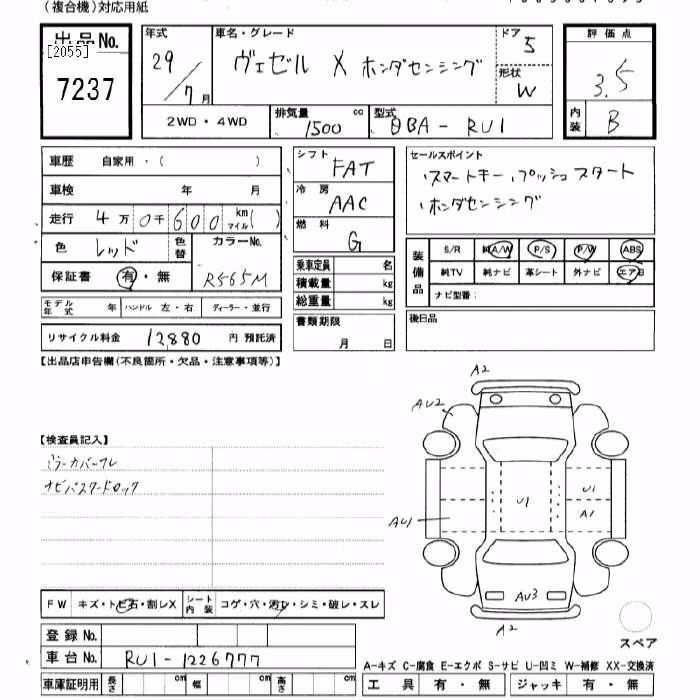 (複合機)対応用紙
出品No.
[2055]
7237
年式
29/7月
車名・グレード
ヴェゼル X ホンダセンシング
ドア 5
形状 W
評価点
3.5
内装 B
2WD・4WD
排気量 1500 cc
型式 DBA-RU1
車歴 自家用・( )
車検 年 月
走行 4万0千600 km マイル( )
色 レッド
色替
カラーNo. R565M
保証書 有・無
モデル年式 年 ハンドル 左・右 ディーラー・並行
リサイクル料金 12880 円 預託済
シフト FAT
冷房 AAC
燃料 G
乗車定員 名
積載量 kg
総重量 kg
書類期限
月 日
セールスポイント
スマートキー プッシュスタート
ホンダセンシング
装備品
S/R 純A/W P/S P/W ABS
純TV 純ナビ 革シート 外ナビ エアB
ナビ型番:
後日品
【出品店申告欄(不良箇所・欠品・注意事項等)】
【検査員記入】
ミラーカバーワレ
ナビパスワードロック
A2
AU2
U1
U1
A1
AU1
AU3
A2
スペア
FW キズ・トビ石・割レX
シート内装 コゲ・穴・汚レ・シミ・破レ・スレ
登録No.
車台No. RU1-1226777
車庫証明用 長さ cm 幅 cm 高さ cm
A-キズ C-腐食 E-エクボ S-サビ U-凹ミ W-補修 XX-交換済
工具 有・無 ジャッキ 有・無